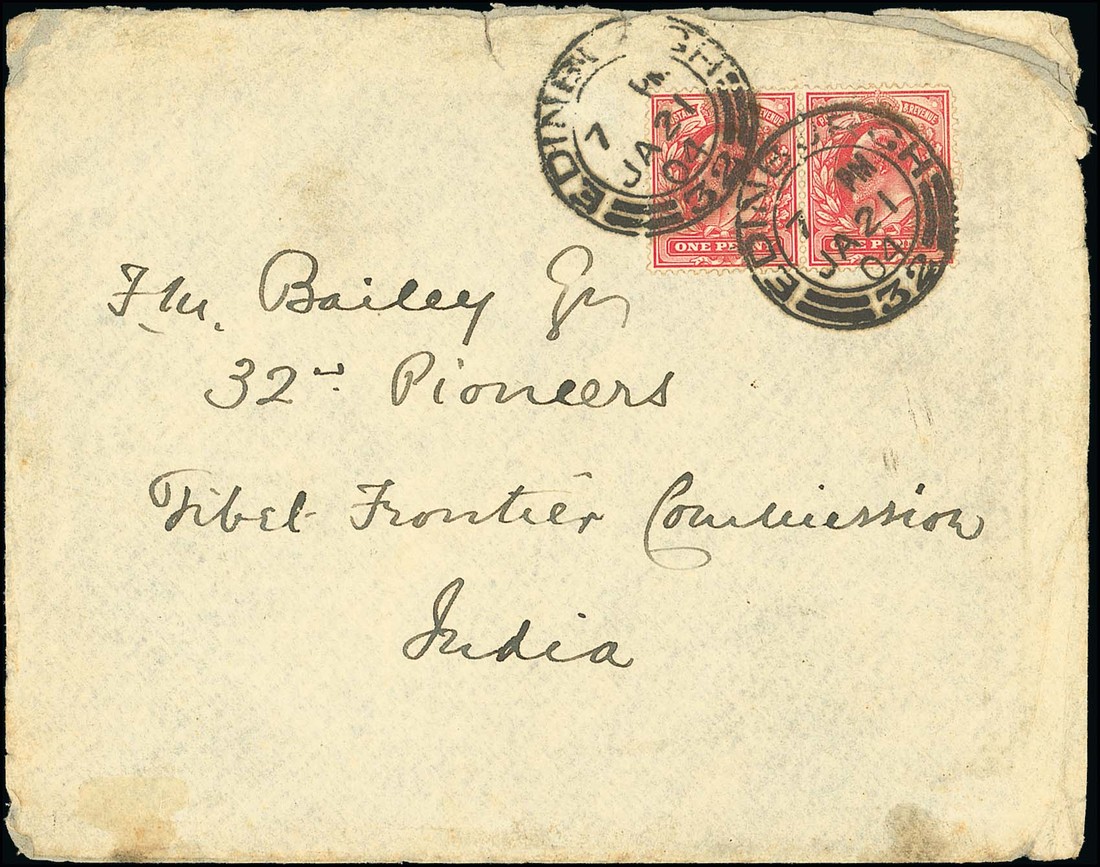 EDINB GH
7 PM
JA 21
04
32
POSTAGE & REVENUE
ONE PENNY
EDINBURGH
7 PM
JA 21
04
32
& REVENUE
ONE PENNY
F.M. Bailey Esq
32nd Pioneers
Tibet Frontier Commission
India